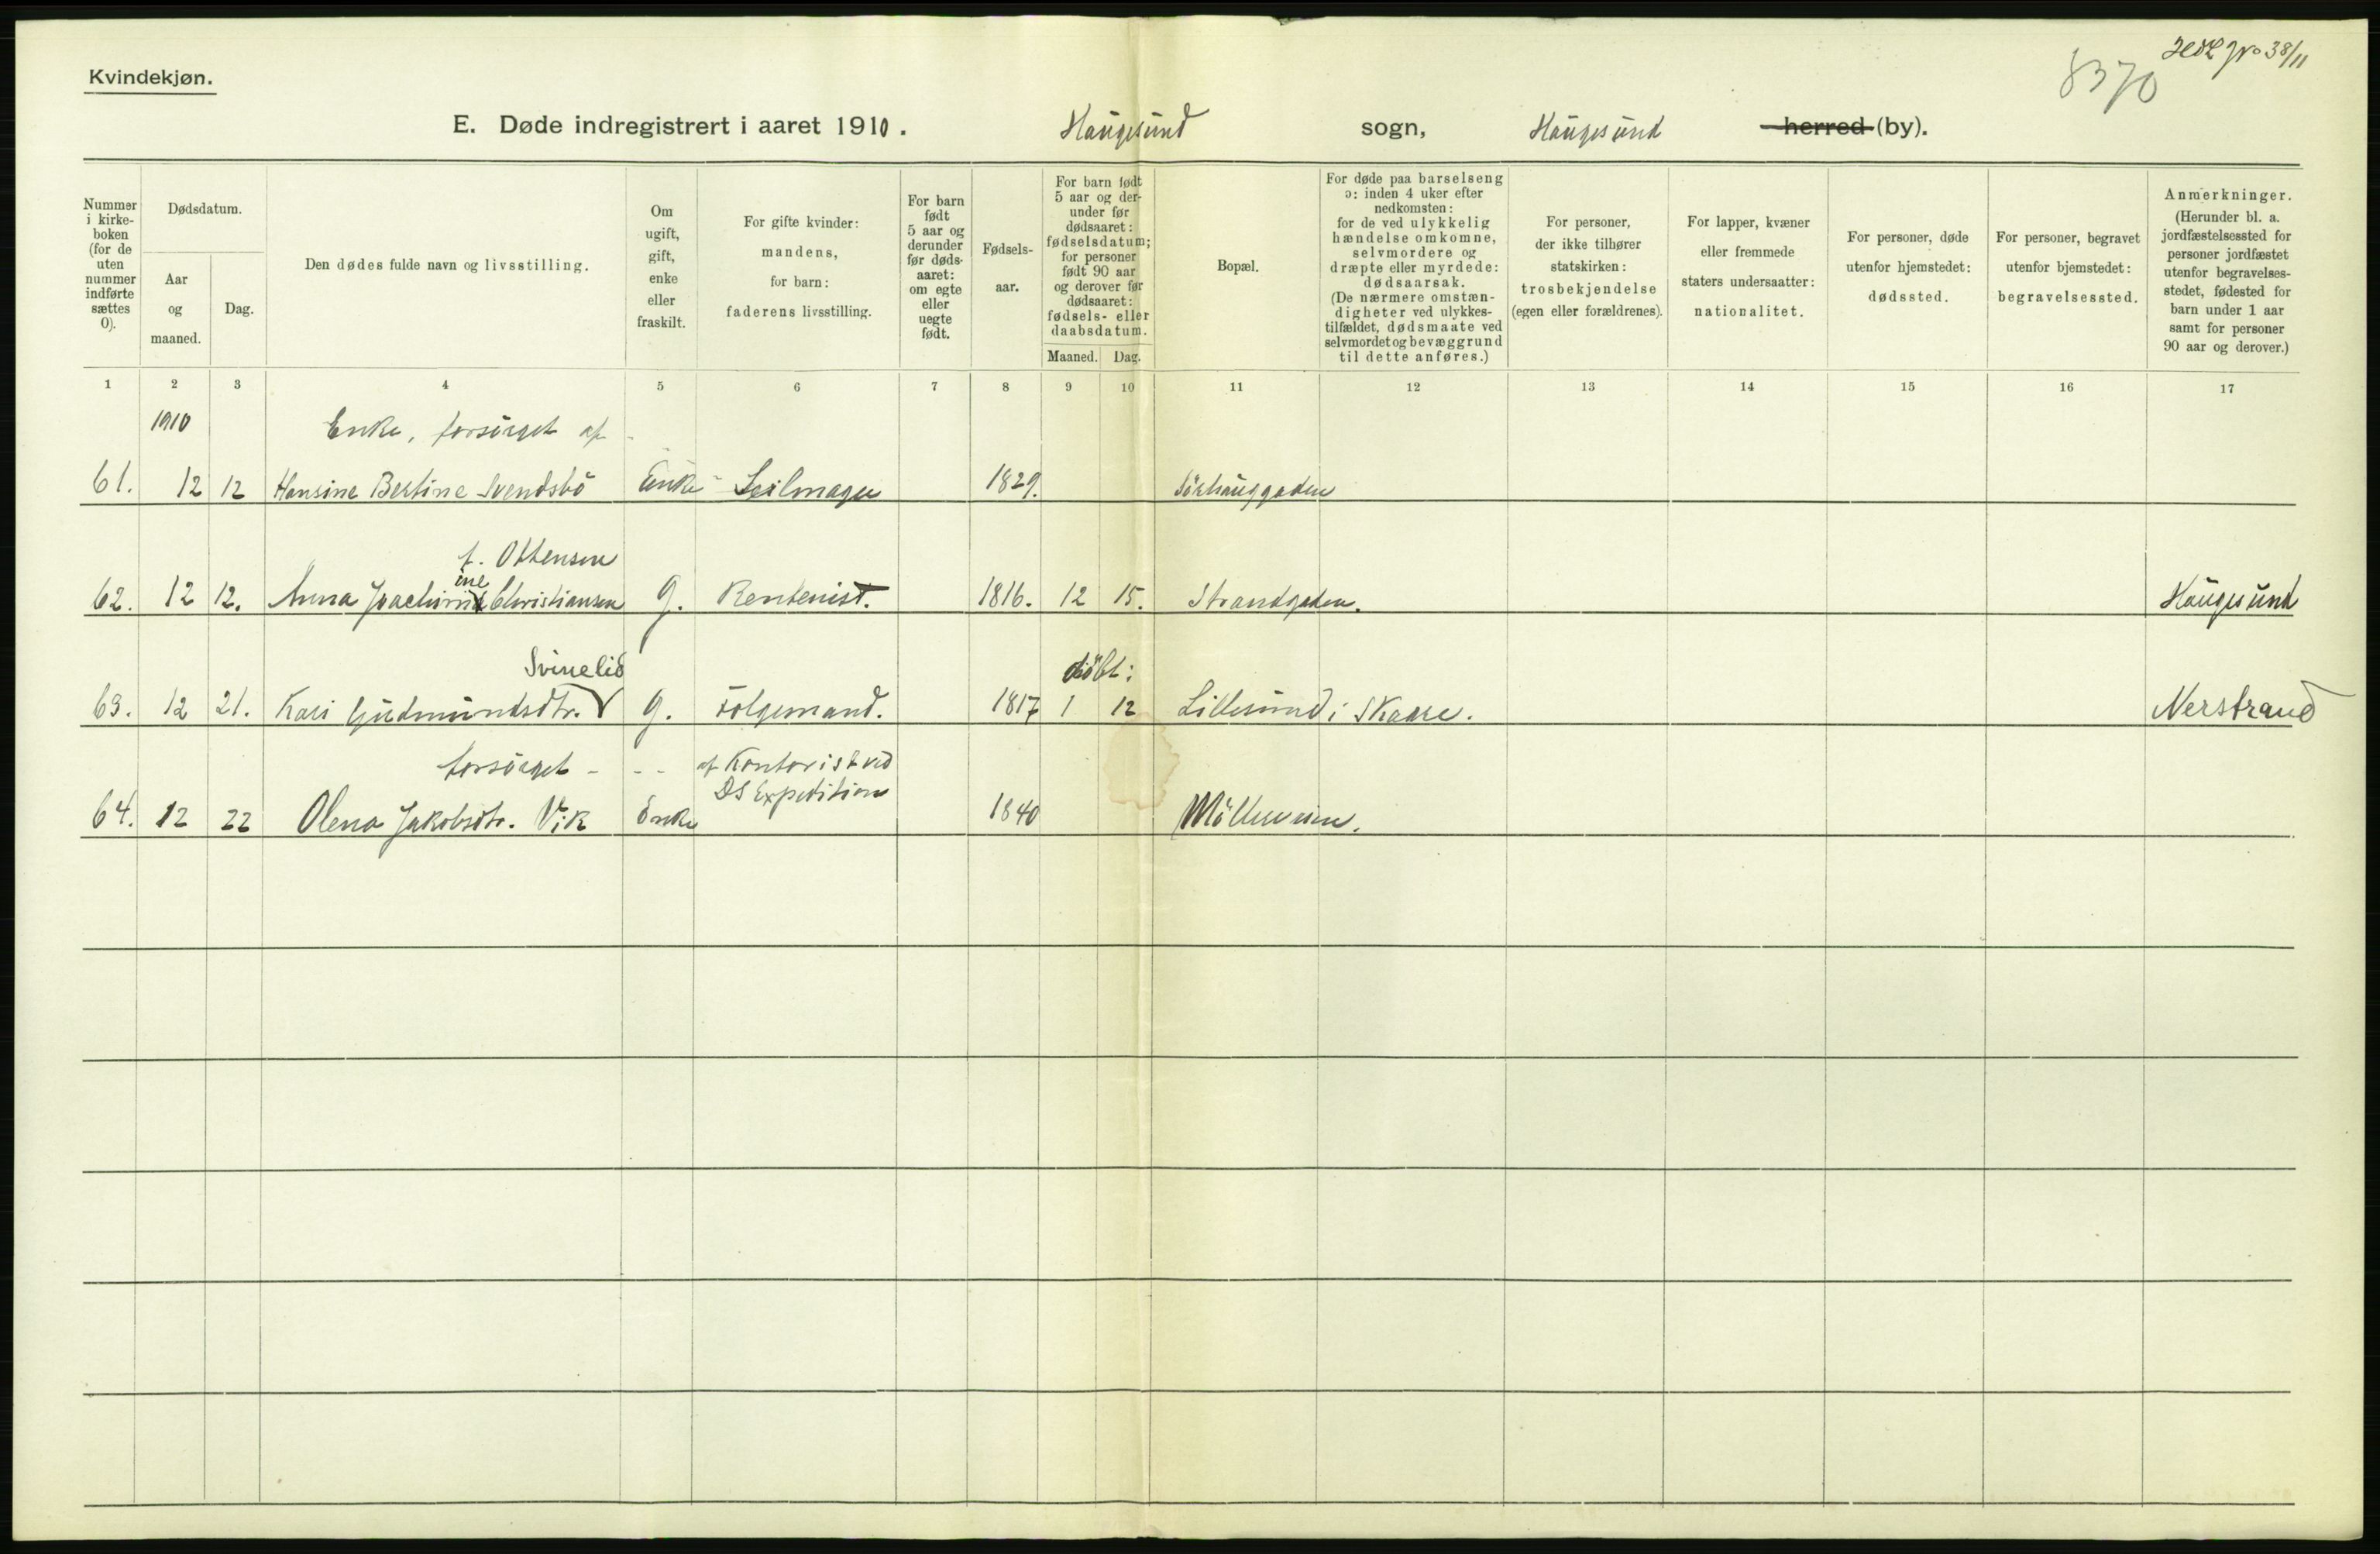 Kvindekjøn.
8370
No 38/11
E. Døde indregistrert i aaret 1910. Haugesund sogn, Haugesund herred (by).
Nummer i kirke- boken (for de uten nummer indførte sættes 0).
Dødsdatum.
Aar og maaned.
Dag.
Den dødes fulde navn og livsstilling.
Om ugift, gift, enke eller fraskilt.
For gifte kvinder: mandens, for barn: faderens livsstilling.
For barn født 5 aar og derunder før døds- aaret: om egte eller uegte født.
Fødsels- aar.
For barn født 5 aar og der- under før dødsaaret: fødselsdatum; for personer født 90 aar og derover før dødsaaret: fødsels- eller daabsdatum.
Maaned. Dag.
Bopæl.
For døde paa barselseng ɔ: inden 4 uker efter nedkomsten: for de ved ulykkelig hændelse omkomne, selvmordere og dræpte eller myrdede: dødsaarsak. (De nærmere omstæn- digheter ved ulykkes- tilfældet, dødsmaate ved selvmordet og bevæggrund til dette anføres.)
For personer, der ikke tilhører statskirken: trosbekjendelse (egen eller forældrenes).
For lapper, kvæner eller fremmede staters undersaatter: nationalitet.
For personer, døde utenfor hjemstedet: dødssted.
For personer, begravet utenfor bjemstedet: begravelsessted.
Anmerkninger. (Herunder bl. a. jordfæstelsessted for personer jordfæstet utenfor begravelses- stedet, fødested for barn under 1 aar samt for personer 90 aar og derover.)
1 2 3 4 5 6 7 8 9 10 11 12 13 14 15 16 17
1910 Enke, forsørget af -
61. 12 12 Hansine Bertine Svendsbö Enke Seilmager 1829. Sörhauggaden
f. Ottensen
ine
62. 12 12. Anna Joachimine Christiansen g. Rentenist. 1816. 12 15. Strandgaden. Haugesund
Svinelid döbt:
63. 12 21. Kari Gudmundsdtr. g. Fölgemand. 1817 1 12 Lillesund i Skaare. Nerstrand
forsörget - - - af Kontorist ved
DS Expedition
64. 12 22 Olena Jakobsdtr. Vik Enke 1840 Mölleveien.